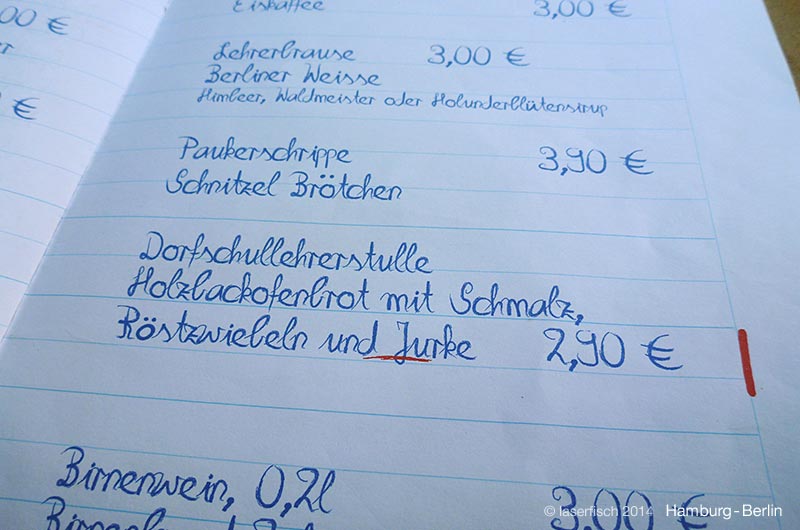 Eiskaffee 3,00 €
00 €
€
Lehrerbrause 3,00 €
Berliner Weisse
Himbeer, Waldmeister oder Holunderblütensirup
Paukerschrippe 3,90 €
Schnitzel Brötchen
Dorfschullehrerstulle
Holzbackofenbrot mit Schmalz,
Röstzwiebeln und Jurke 2,90 €
Birnenwein, 0,2l 3,00 €
© laserfisch 2014 Hamburg-Berlin